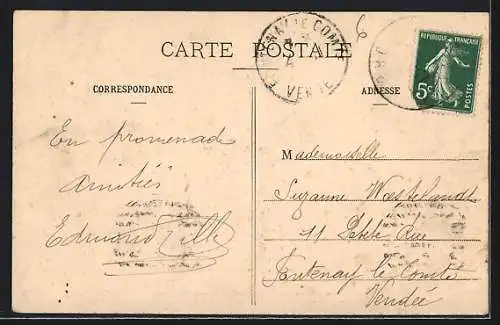 CARTE POSTALE
FONTENAY LE COMTE
VENDÉE
REPUBLIQUE FRANÇAISE
5c POSTES
CORRESPONDANCE
ADRESSE
En promenade
Amitiés
Mademoiselle
Suzanne
11 Rue
Fontenay le Comte
Vendée